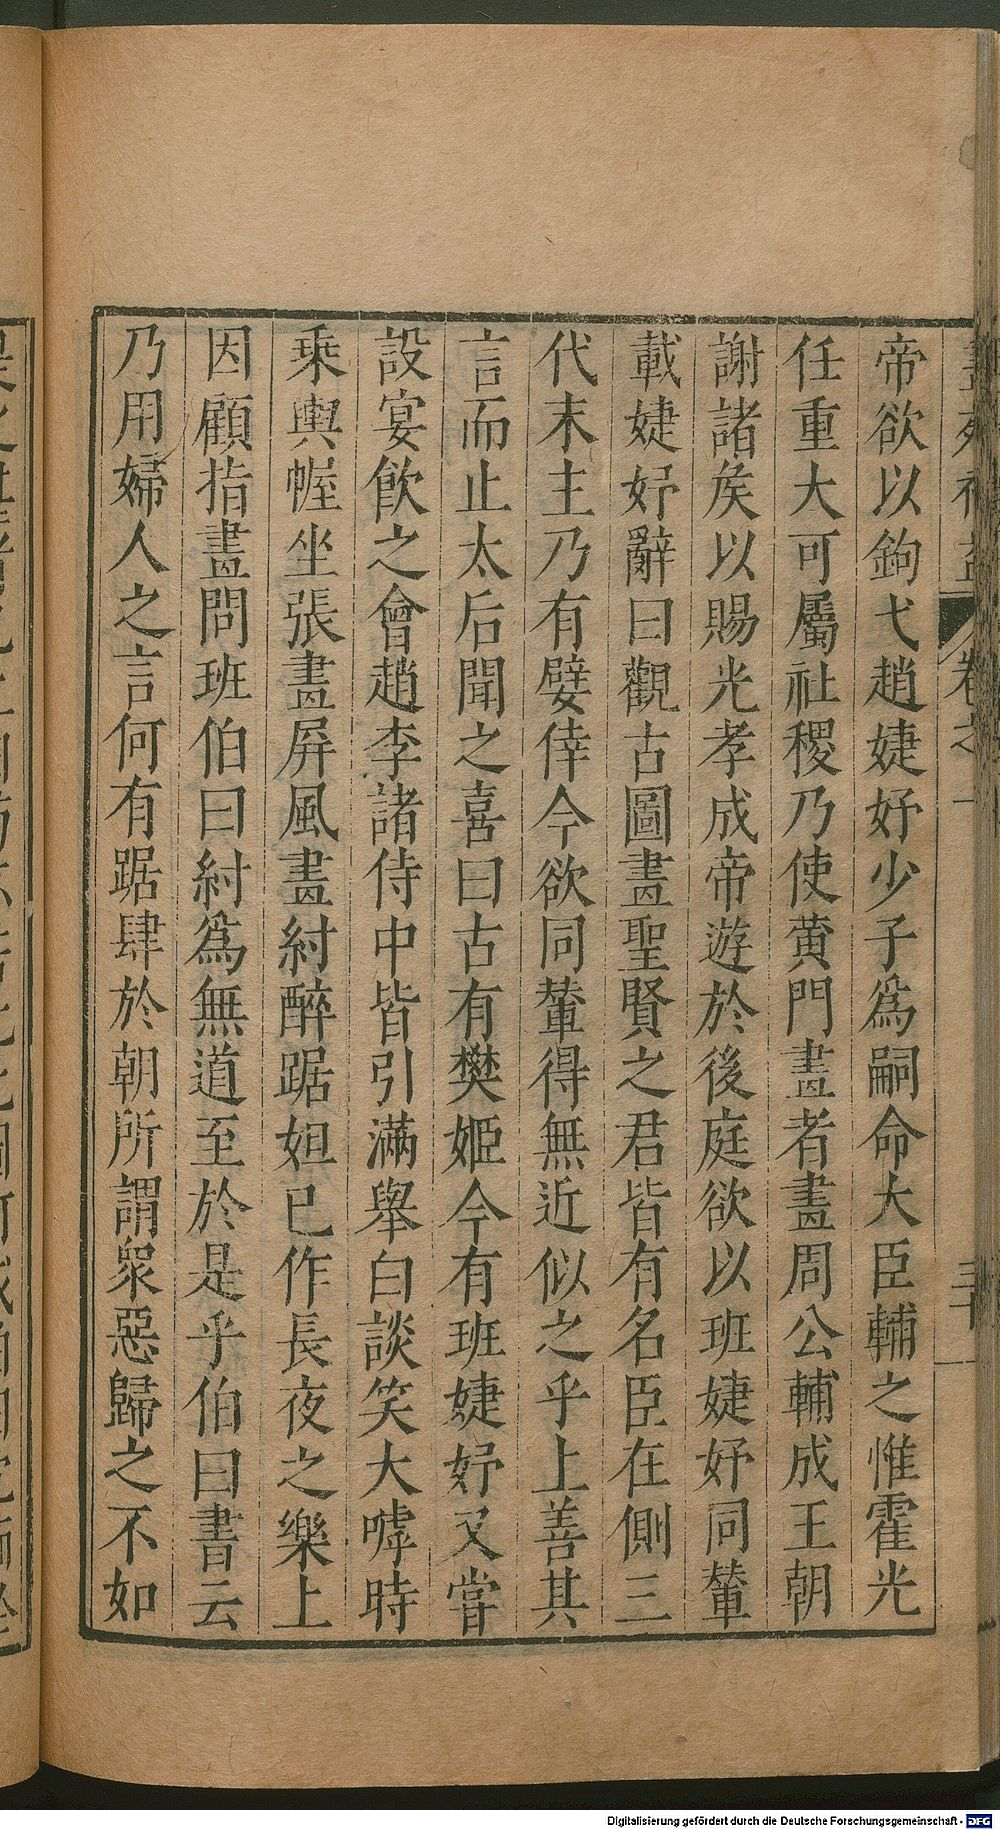 畫苑補益 卷之一 三十
帝欲以鉤弋趙婕妤少子爲嗣命大臣輔之惟霍光
任重大可屬社稷乃使黄門畫者畫周公輔成王朝
謝諸矦以賜光孝成帝遊於後庭欲以班婕妤同輦
載婕妤辭曰觀古圖畫聖賢之君皆有名臣在側三
代末主乃有嬖倖今欲同輦得無近似之乎上善其
言而止太后聞之喜曰古有樊姬今有班婕妤又嘗
設宴飲之會趙李諸侍中皆引滿舉白談笑大噱時
乗輿幄坐張畫屏風畫紂醉踞妲己作長夜之樂上
因顧指畫問班伯曰紂爲無道至於是乎伯曰書云
乃用婦人之言何有踞肆於朝所謂衆惡歸之不如
Digitalisierung gefördert durch die Deutsche Forschungsgemeinschaft - DFG